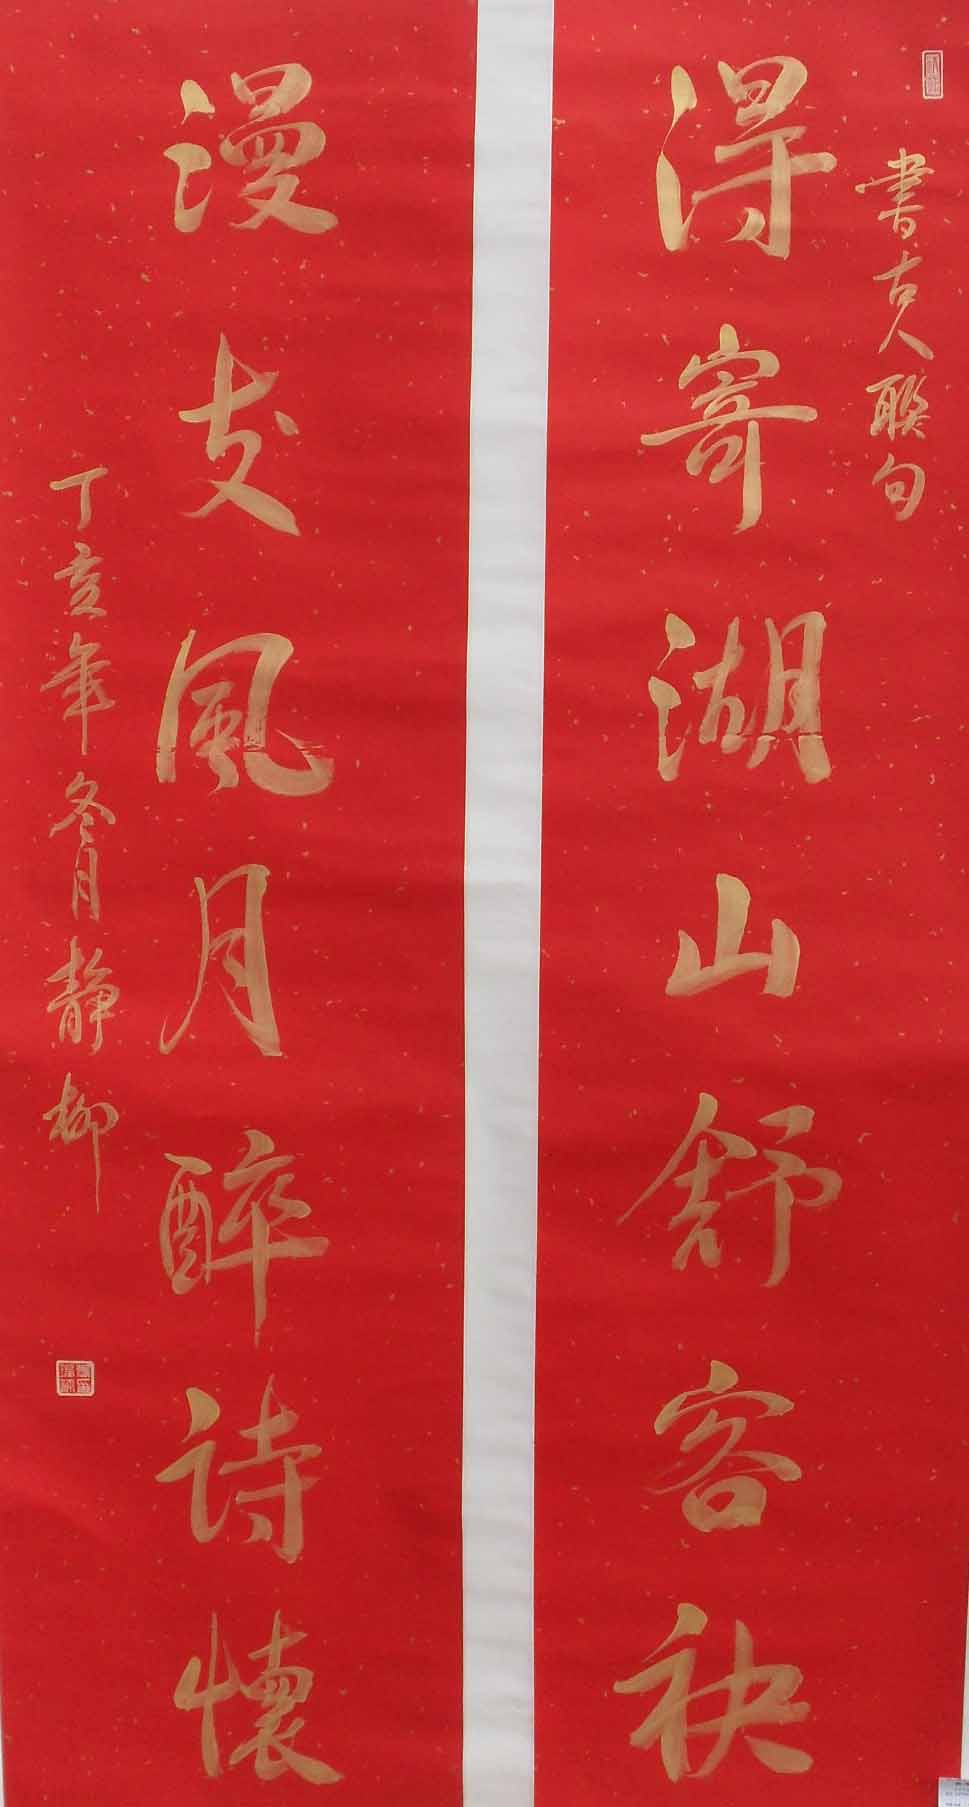 書古人聯句
得寄湖山舒客袂
漫支風月醉詩懷
丁亥年冬月靜柳